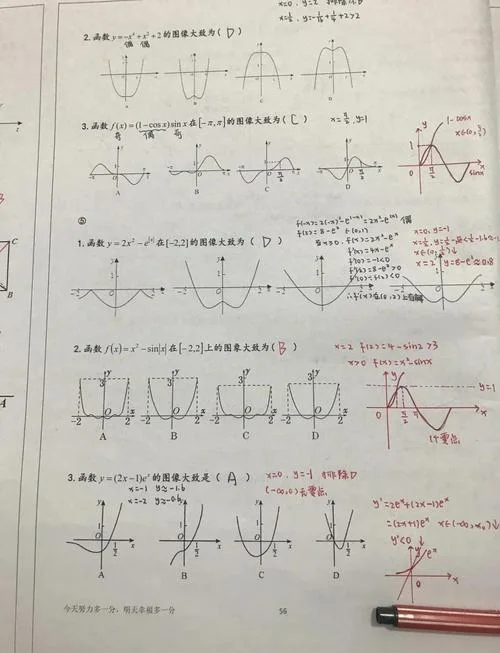 x=0, y=2 排除
x=½, y=-1/16+1/4+2>2
2. 函数 y=-x⁴+x²+2 的图像大致为( D )
偶 偶
A B C D
3. 函数 f(x)=(1-cosx)sinx 在[-π,π]的图像大致为( C )
奇 偶 奇
x=π/2, y=1
1-cosx
x∈(0,π/2)
sinx
A B C D
⑤
f(-x)=2(-x)²-e^|-x|=2x²-e^|x| 偶
f(2)=8-e²∈(0,1)
x=0, y=-1
1. 函数 y=2x²-e^|x| 在[-2,2]的图像大致为( D )
当x>0, f(x)=2x²-e^x
f'(x)=4x-e^x
f'(0)=-1<0
f'(2)=8-e²>0
f'(0)·f'(2)<0
x=2, y=8-e²≈0.8
2. 函数 f(x)=x²-sin|x| 在[-2,2]上的图象大致为( B )
x=2 f(2)=4-sin2>3
x>0 f(x)=x²-sinx
y=1
1个零点
A B C D
3. 函数 y=(2x-1)e^x 的图象大致是( A )
x=0, y=-1 排除D
x=-1 y≈-1.1
x=-2 y≈-0.6
(-∞,0)无零点
y'=2e^x+(2x-1)e^x
=(2x+1)e^x
y'<0
e^x
A B C D
今天努力多一分，明天幸福多一分
56